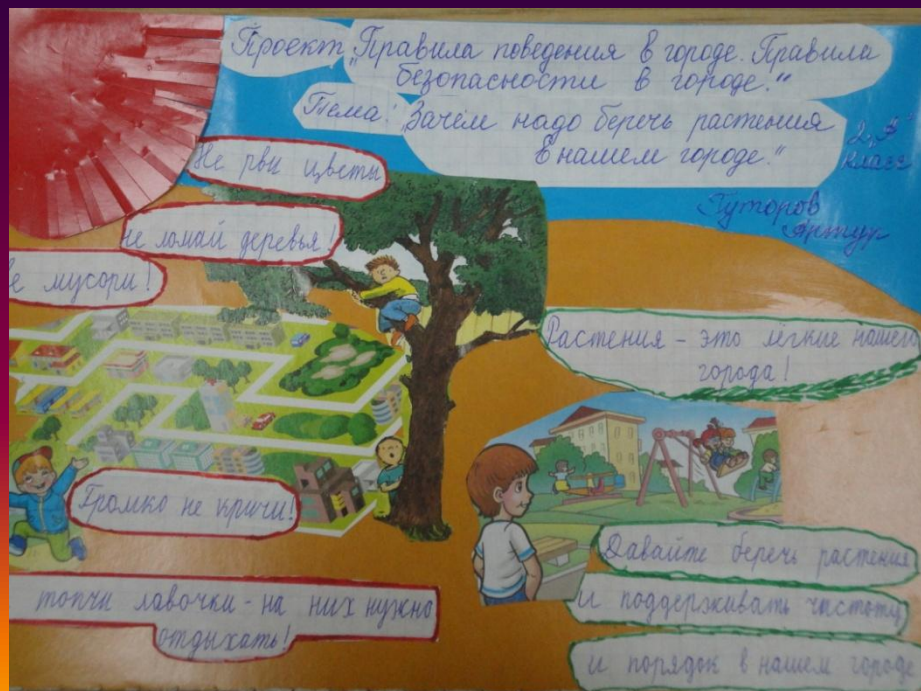 Проект „Правила поведения в городе. Правила
безопасности в городе."
Тема: „Зачем надо беречь растения
в нашем городе."
2 „А"
класс
Гуторов
Артур
Не рви цветы
не ломай деревья!
е мусори!
Растения - это лёгкие нашего
города!
Громко не кричи!
топчи лавочки - на них нужно
отдыхать!
Давайте беречь растения
и поддерживать чистоту
и порядок в нашем городе